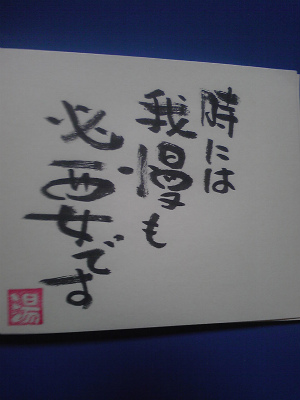 時には
我慢も
必要です